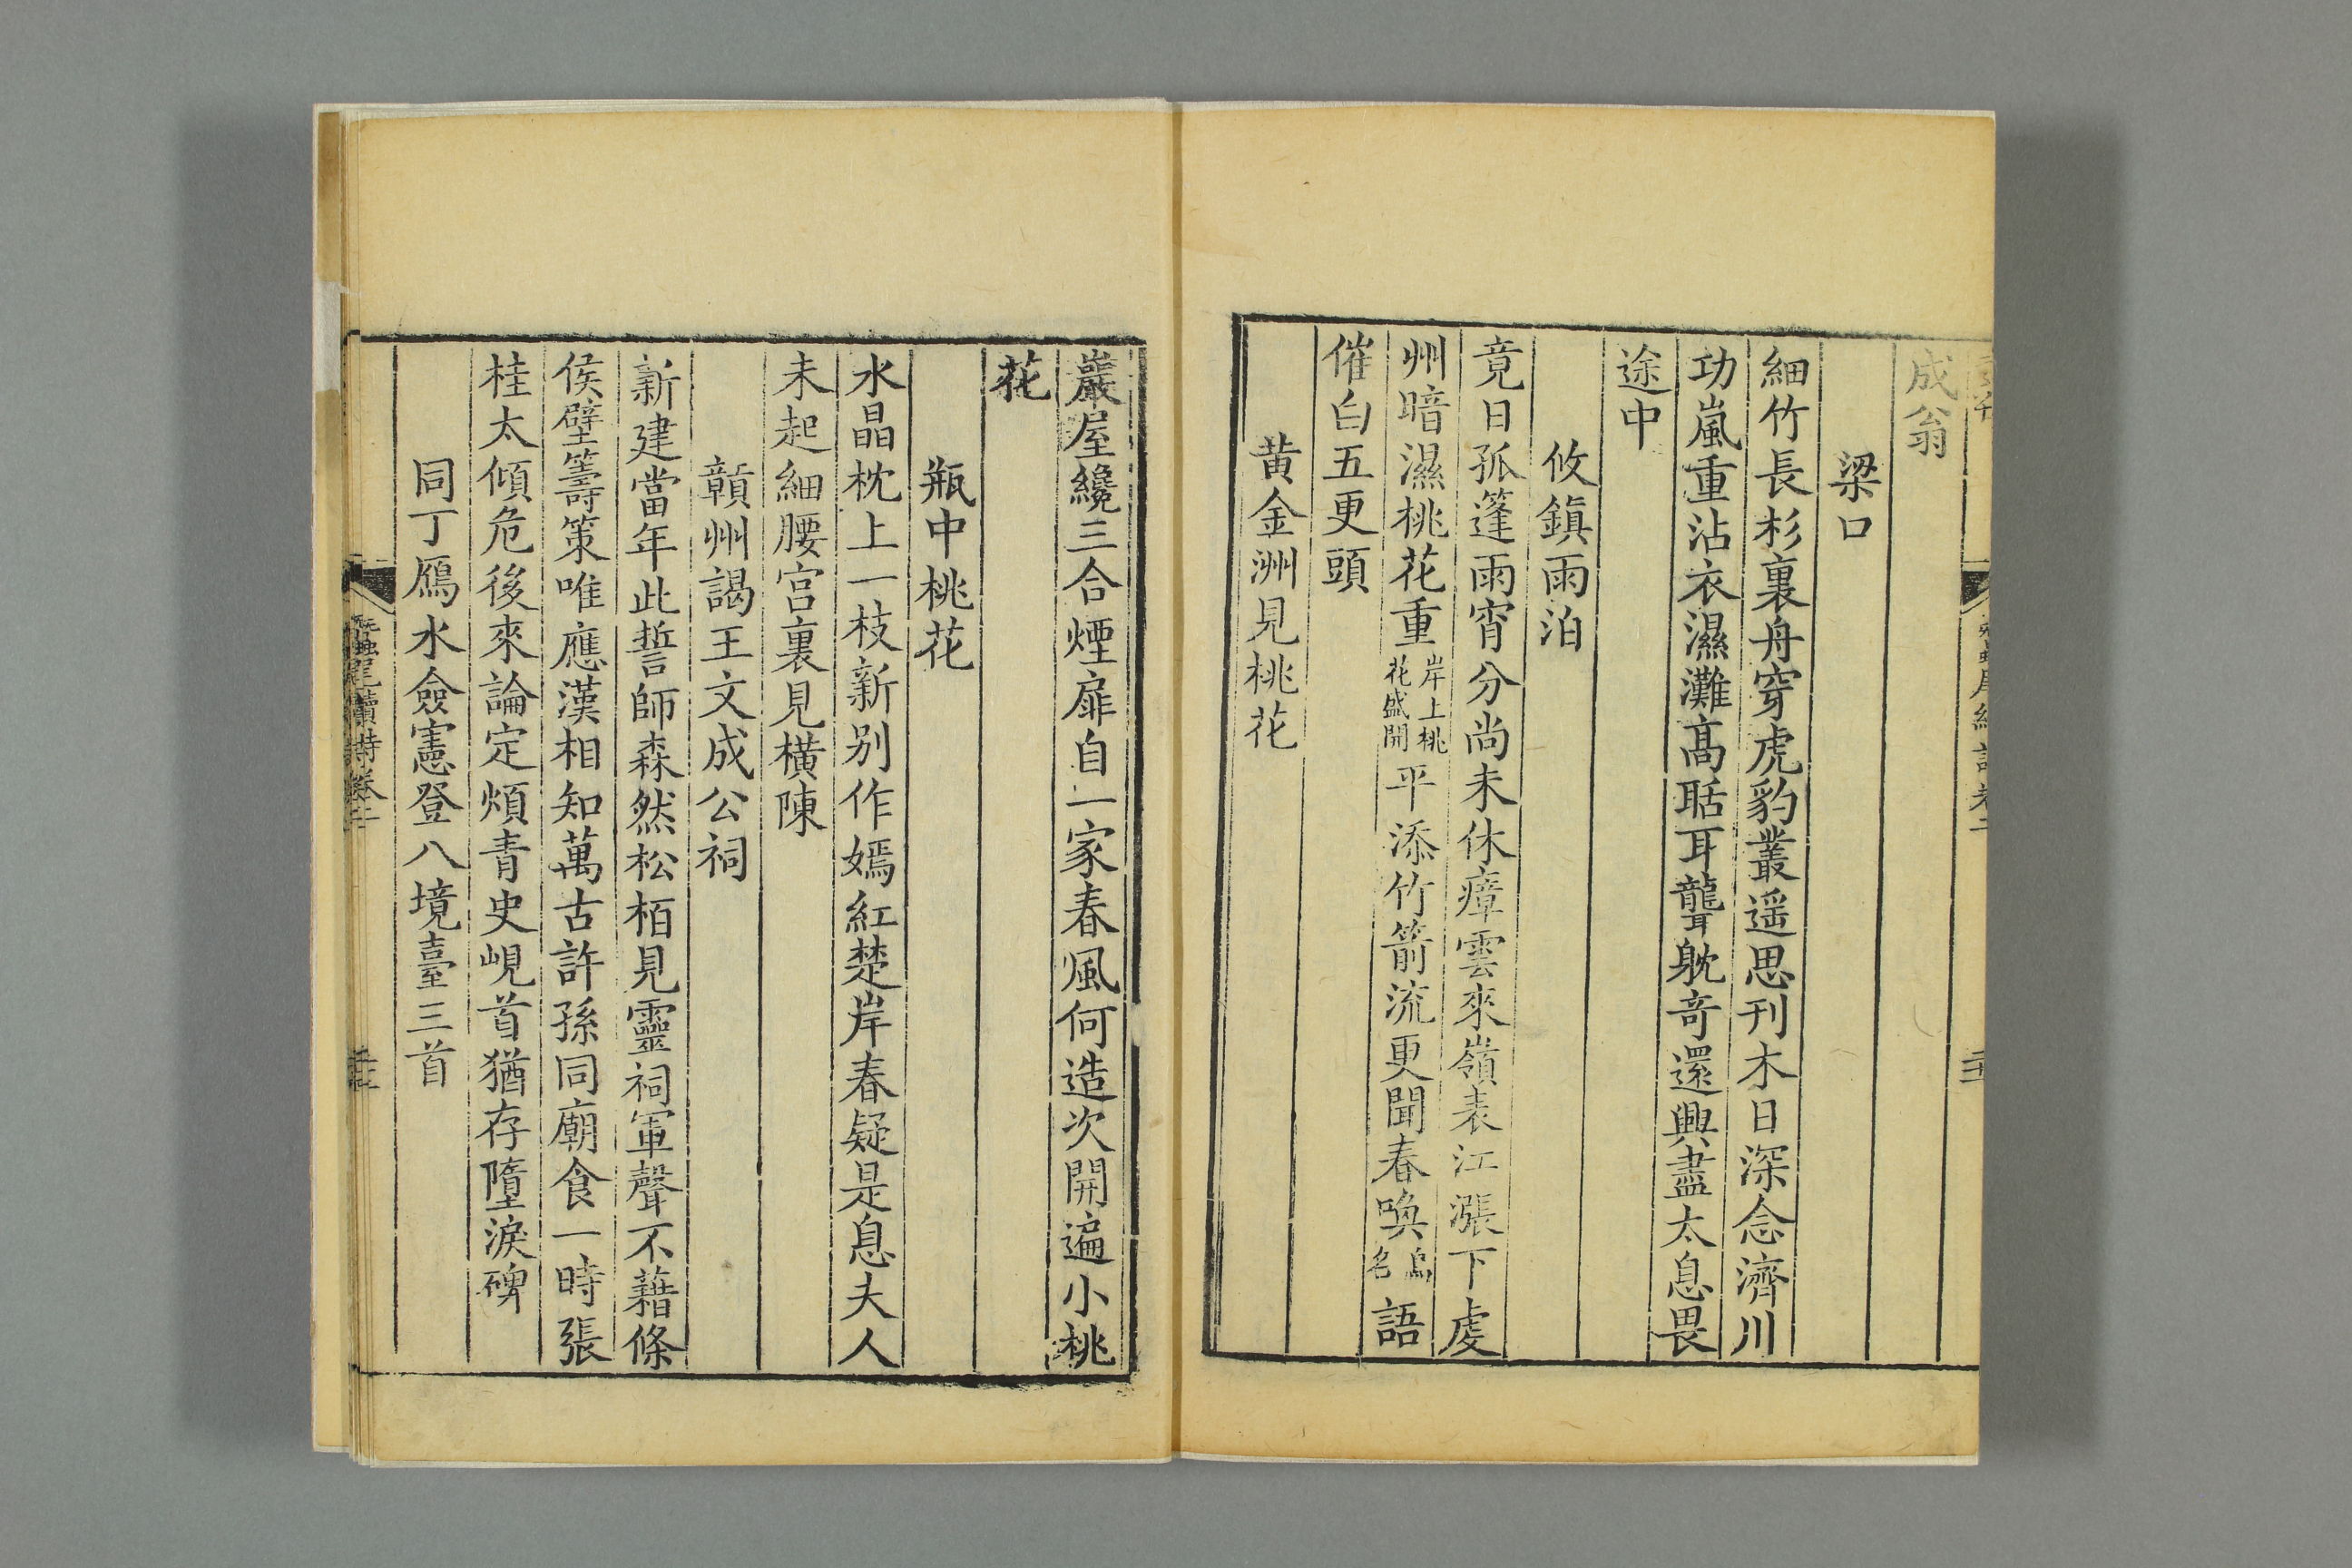 成翁
梁口
細竹長杉裏舟穿虎豹叢遥思刋木日深念濟川
功嵐重沾衣濕灘髙聒耳聾躭奇還興盡太息畏
途中
攸鎮雨泊
竟日孤篷雨宵分尚未休瘴雲來嶺表江漲下虔
州暗濕桃花重岸上桃花盛開平添竹箭流更聞春喚鳥名語
催白五更頭
黄金洲見桃花
巖屋纔三合煙扉自一家春風何造次開遍小桃
花
瓶中桃花
水晶枕上一枝新别作嫣紅楚岸春疑是息夫人
未起細腰宫裏見橫陳
贑州謁王文成公祠
新建當年此誓師森然松栢見靈祠軍聲不藉條
侯壁籌策唯應漢相知萬古許孫同廟食一時張
桂太傾危後來論定煩青史峴首猶存墮淚碑
同丁鴈水僉憲登八境臺三首
蠶尾續詩卷二